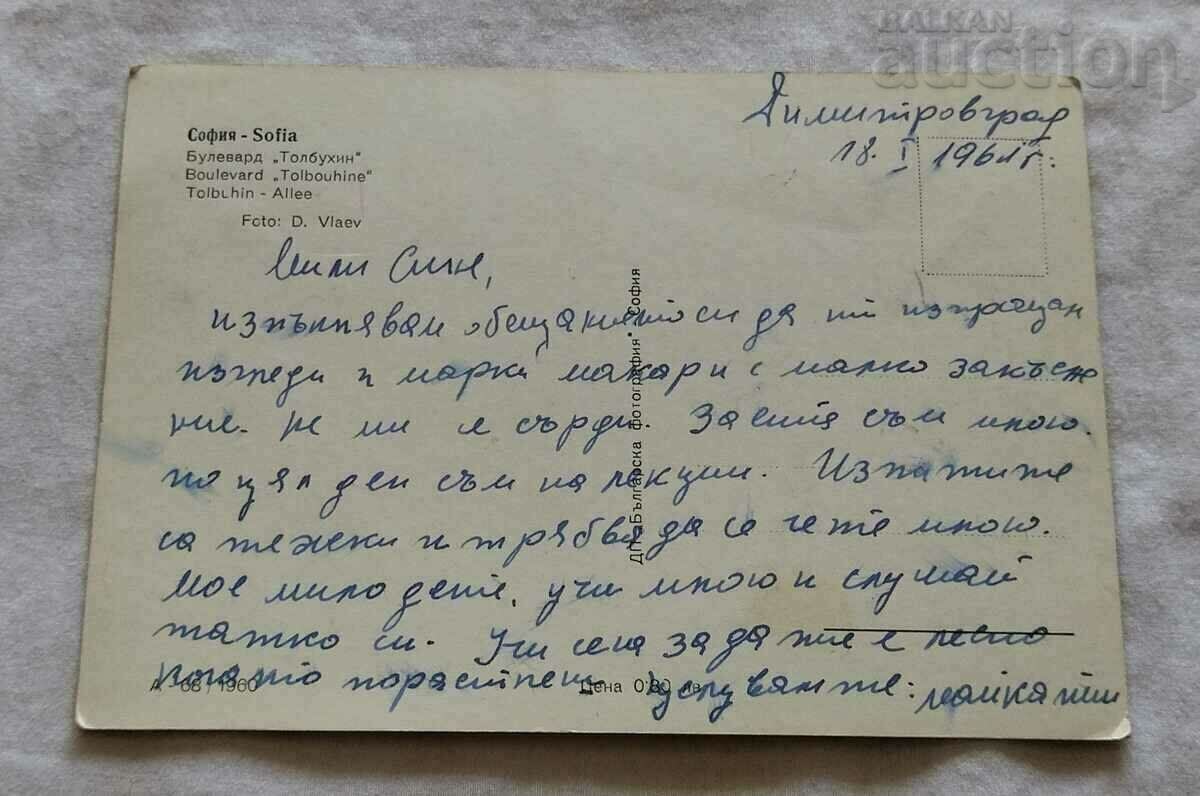 BALKAN
auction
Димитровград
18. I 1961 г.
София - Sofia
Булевард „Толбухин"
Boulevard „Tolbouhine"
Tolbuhin - Allee
Foto: D. Vlaev
Мили Сине,
изпълнявам обещанието си да ти изпращам
изгледи и марки макари с малко закъсне
ние. Не ми се сърди. Заета съм много.
по цял ден съм на лекции. Изпитите
са тежки и трябва да се чете много.
Мое мило дете, учи много и слушай
татко си. Учи сега за да ти е лесно
когато порастнеш Целувам те: майка ти
ДП „Българска фотография" • София
А - 68 / 1960
Цена 0·80 лв.